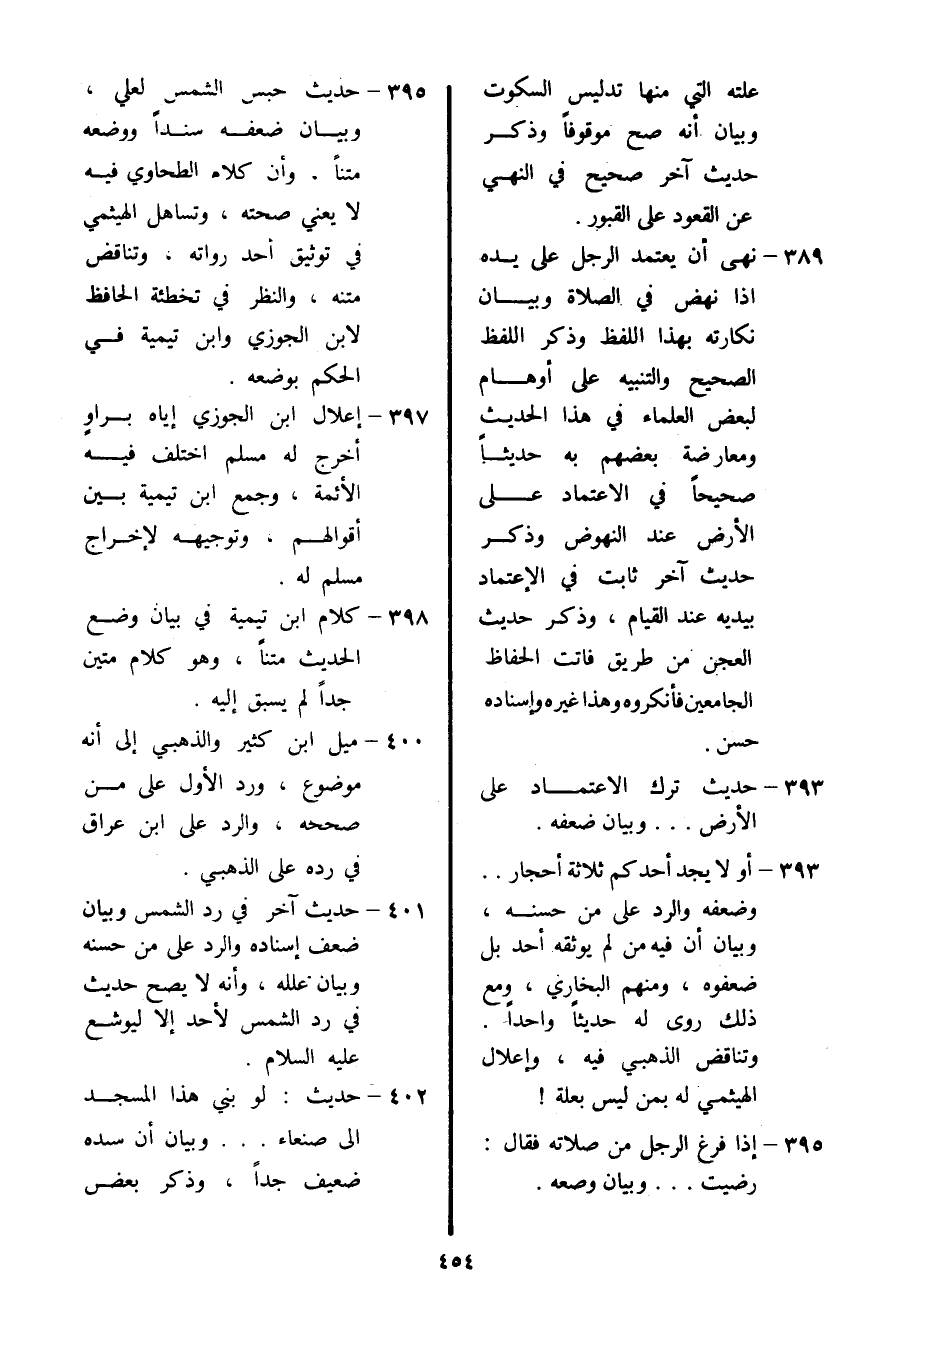 علته التي منها تدليس السكوت
وبيان أنه صح موقوفاً وذكر
حديث آخر صحيح في النهي
عن القعود على القبور .
٣٨٩ - نهى أن يعتمد الرجل على يده
اذا نهض في الصلاة وبيان
نكارته بهذا اللفظ وذكر اللفظ
الصحيح والتنبيه على أوهام
لبعض العلماء في هذا الحديث
ومعارضة بعضهم به حديثاً
صحيحاً في الاعتماد على
الأرض عند النهوض وذكر
حديث آخر ثابت في الإعتماد
بيديه عند القيام ، وذكر حديث
العجن من طريق فاتت الحفاظ
الجامعين فأنكروه وهذا غيره وإسناده
حسن .
٣٩٣ - حديث ترك الاعتماد على
الأرض . . . وبيان ضعفه .
٣٩٣ - أو لا يجد أحدكم ثلاثة أحجار . .
وضعفه والرد على من حسنه ،
وبيان أن فيه من لم يوثقه أحد بل
ضعفوه ، ومنهم البخاري ، ومع
ذلك روى له حديثاً واحداً .
وتناقض الذهبي فيه ، وإعلال
الهيثمي له بمن ليس بعلة !
٣٩٥ - إذا فرغ الرجل من صلاته فقال :
رضيت . . . وبيان وضعه .
٣٩٥ - حديث حبس الشمس لعلي ،
وبيان ضعفه سنداً ووضعه
متناً . وأن كلام الطحاوي فيه
لا يعني صحته ، وتساهل الهيثمي
في توثيق أحد رواته ، وتناقض
متنه ، والنظر في تخطئة الحافظ
لابن الجوزي وابن تيمية في
الحكم بوضعه .
٣٩٧ - إعلال ابن الجوزي إياه براوٍ
أخرج له مسلم اختلف فيه
الأئمة ، وجمع ابن تيمية بين
أقوالهم ، وتوجيهه لإخراج
مسلم له .
٣٩٨ - كلام ابن تيمية في بيان وضع
الحديث متناً ، وهو كلام متين
جداً لم يسبق إليه .
٤٠٠ - ميل ابن كثير والذهبي إلى أنه
موضوع ، ورد الأول على من
صححه ، والرد على ابن عراق
في رده على الذهبي .
٤٠١ - حديث آخر في رد الشمس وبيان
ضعف إسناده والرد على من حسنه
وبيان علله ، وأنه لا يصح حديث
في رد الشمس لأحد إلا ليوشع
عليه السلام .
٤٠٢ - حديث : لو بني هذا المسجد
الى صنعاء . . . وبيان أن سنده
ضعيف جداً ، وذكر بعض
٤٥٤